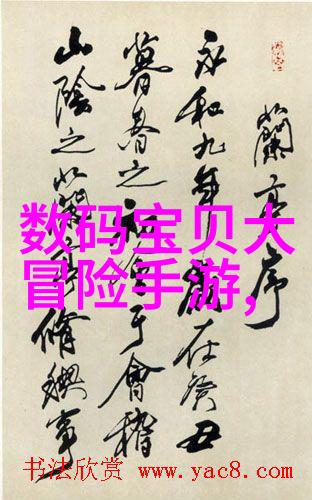 蘭亭序
永和九年歲在癸丑
暮春之初會于會稽
山陰之蘭亭脩禊事
数码宝贝大
冒险手游,
书法欣赏 www.yac8.com